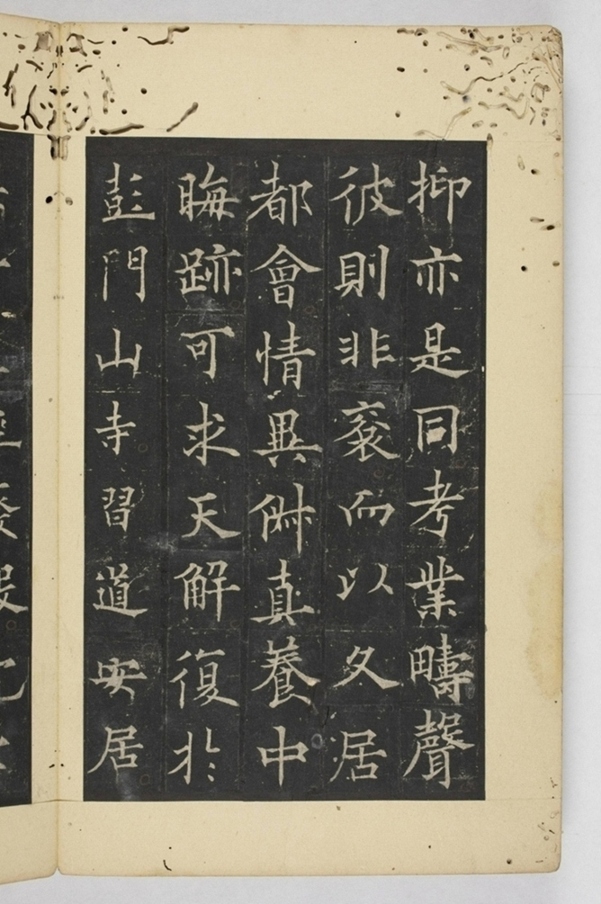 抑亦是同考業疇聲
彼則非衮而以久居
都會情異真養中
晦跡可求天解復於
彭門山寺習道安居